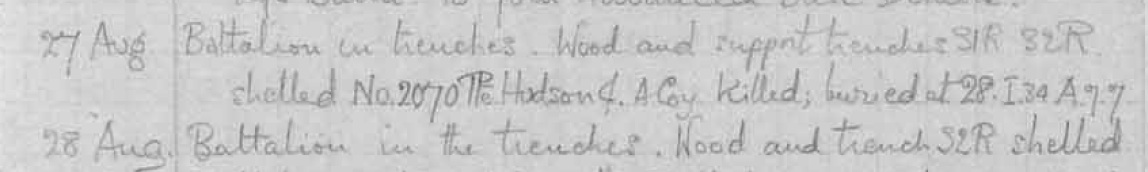 27 Aug Battalion in trenches. Wood and support trenches S1R S2R.
shelled No. 2070 Pte Hodson C. A Coy killed; buried at 28. I.34 A.7.7
28 Aug. Battalion in the trenches. Wood and trench S2R shelled